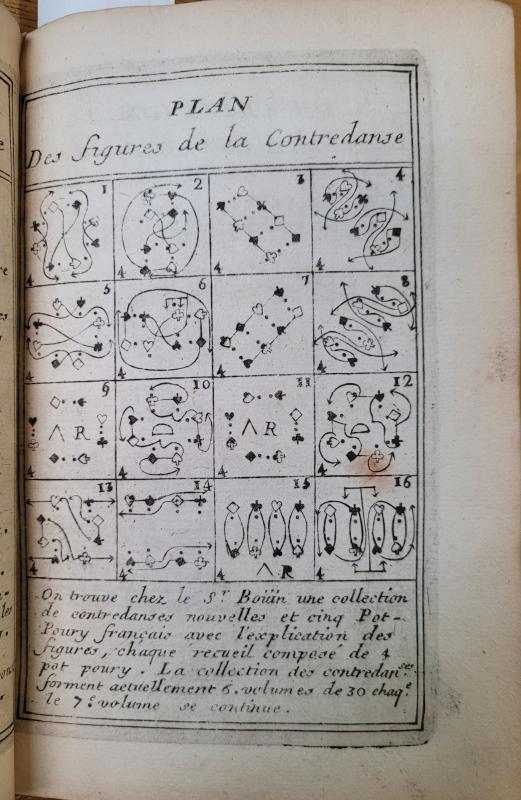 PLAN
Des figures de la Contredanse
1 2 3 4
4 4 4 4
5 6 7 8
4 4 4 4
9 10 11 12
Λ R Λ R
4 4 4 4
13 14 15 16
Λ R
4 4 4 4
On trouve chez le Sr Boüin une collection
de contredanses nouvelles et cinq Pot-
Poury français avec l'explication des
figures, chaque recueil composé de 4
pot poury. La collection des contredanses
forment actuellement 6. volumes de 30 chaqe
le 7e volume se continue.